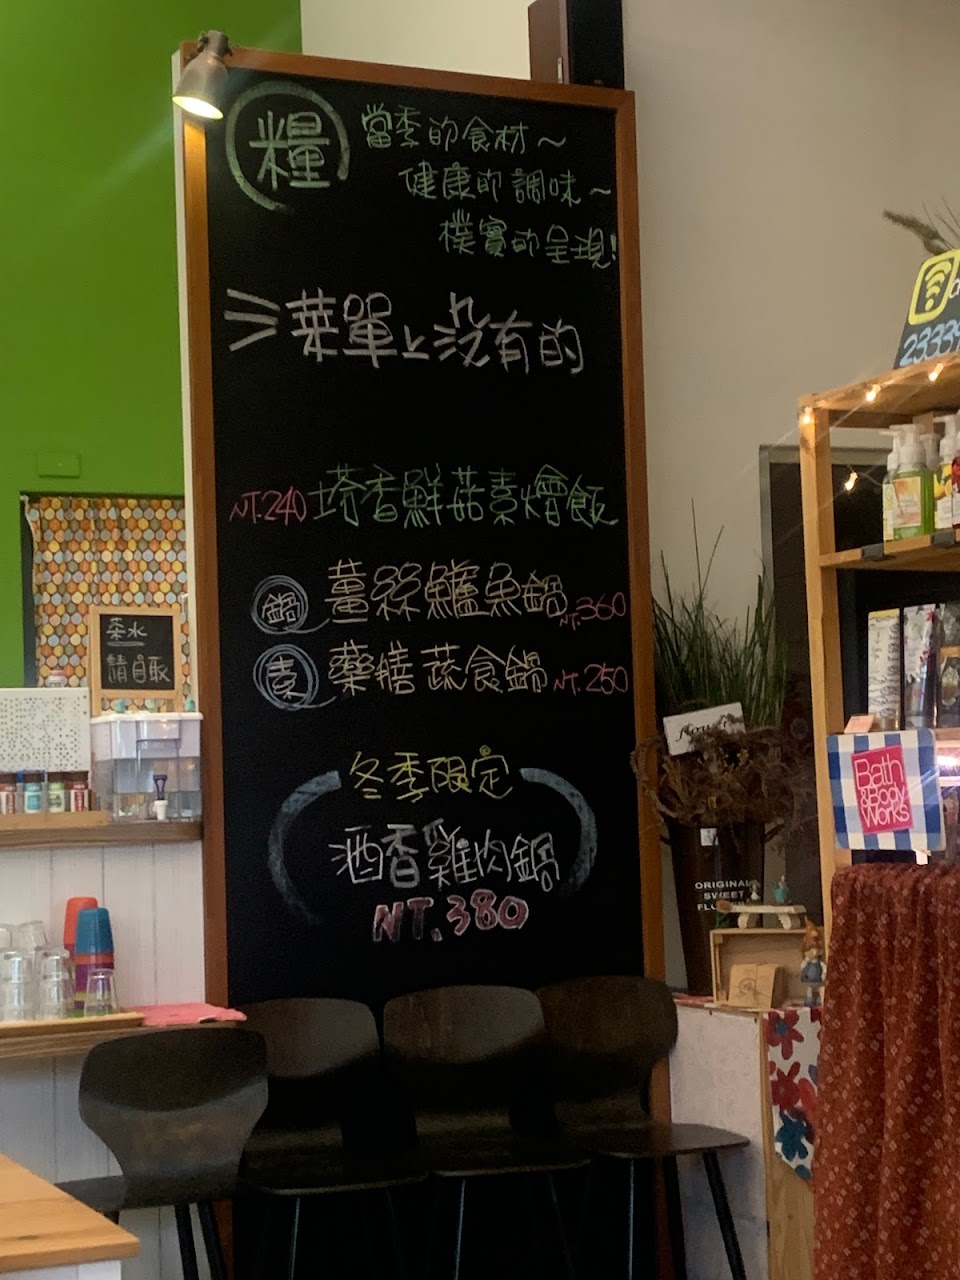 糧
當季的食材~
健康的調味~
樸實的呈現!
菜單上沒有的
NT.240 塔香鮮菇素燴飯
鍋 薑絲鱸魚鍋 NT.360
素 藥膳蔬食鍋 NT.250
冬季限定
酒香雞肉鍋
NT.380
茶水
請自取
Bath
&Body
Works
ORIGINAL
SWEET